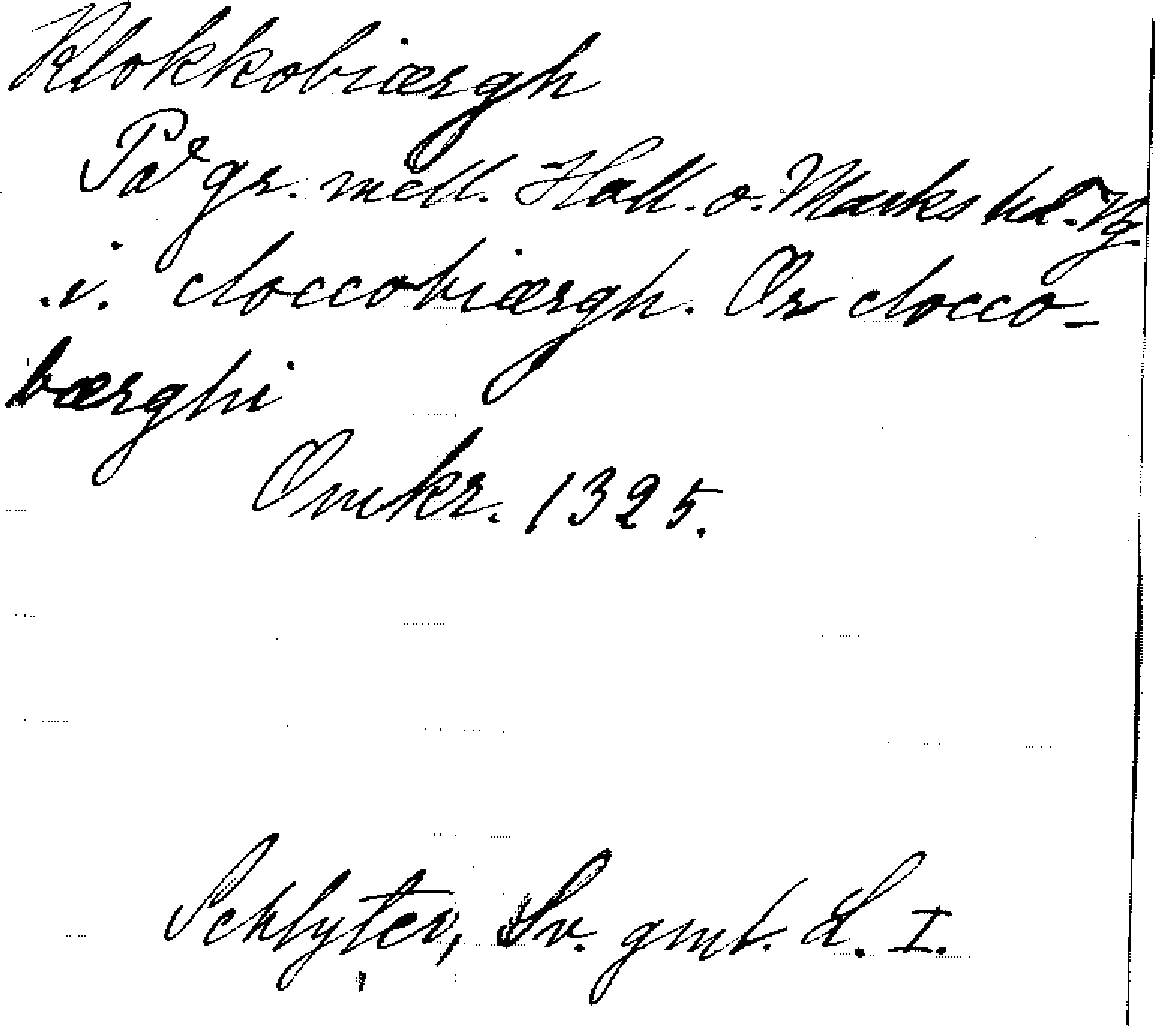 Klokkobiærgh
På gr. mell. Hall. o. Marks hd. Vg
.i. cloccobiærgh. Or clocco-
bærghi
Omkr. 1325.
Schlyter, Sv. gml. L. I.